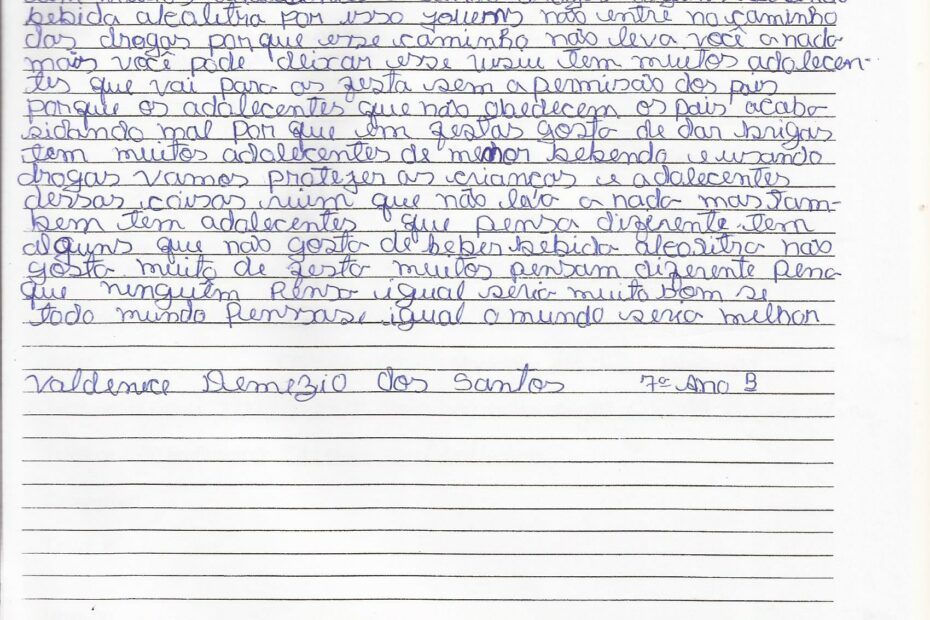 bebida alcalitra por isso jovens não entre no caminho
das drogas porque esse caminho não leva você a nada
mais você pode deixar esse usiu tem muitos adalecen-
tes que vai para as festa sem a permisão dos pais
porque os adalecentes que não abedecem os pais acaba
sidando mal por que em festas gosta de dar brigas
tem muitos adalecentes de menor bebendo e usando
drogas vamos protezer as crianças e adalecentes
dessas coisas ruim que não leva a nada mas tam-
bem tem adalecentes que pensa diferente tem
alguns que não gosta de beber bebida alcoritra não
gosta muito de festa muitos pensam diferente pena
que ninguém pensa igual seria muito bom se
todo mundo pensase igual o mundo seria melhor
Valdenice Demezio dos Santos 7º Ano B